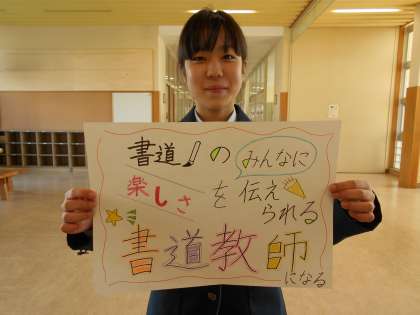 書道の みんなに
楽しさを伝え
られる
書道教師
になる